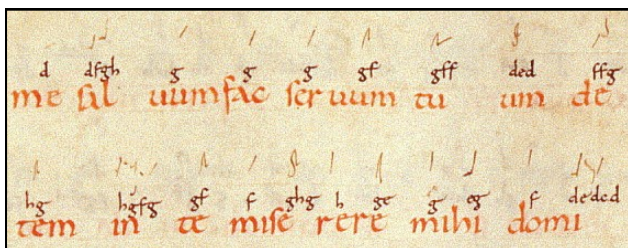 d dfgh g g g gf gff ded ffg
me sal uum fac ser uum tu um de
hg hgfg gf f ghg h ge g eg f deded
tem in te mise rere mihi domi